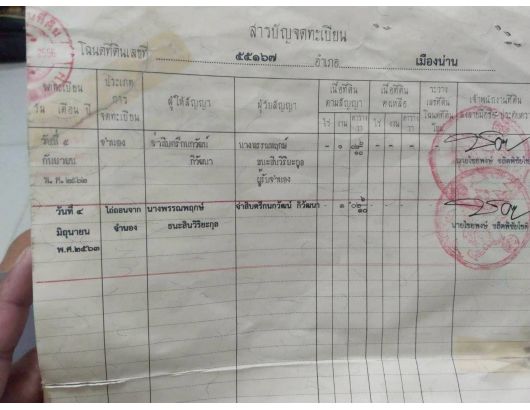 สารบัญจดทะเบียน
โฉนดที่ดินเลขที่ ๕๕๑๖๗ อำเภอ เมืองน่าน
จดทะเบียน วัน เดือน ปี
ประเภทการจดทะเบียน
ผู้ให้สัญญา
ผู้รับสัญญา
เนื้อที่ดินตามสัญญา
ไร่ งาน ตารางวา
เนื้อที่ดินคงเหลือ
ไร่ งาน ตารางวา
ระวาง เลขที่ดิน โฉนดที่ดินใหม่
เจ้าพนักงานที่ดิน
วันที่ ๕ จำนอง จ่าสิบตรีกนกวัฒน์ นางพรรณพฤกษ์ - ๑
กันยายน กิวัฒนา ธนะสินวิริยะกุล
พ.ศ.๒๕๖๒ ผู้รับจำนอง
นายไชยพงษ์ ชลิตพิชัยโชติ
วันที่ ๔ ไถ่ถอนจาก นางพรรณพฤกษ์ จ่าสิบตรีกนกวัฒน์ กิวัฒนา - ๑
มิถุนายน จำนอง ธนะสินวิริยะกุล
พ.ศ.๒๕๖๓
นายไชยพงษ์ ชลิตพิชัยโชติ